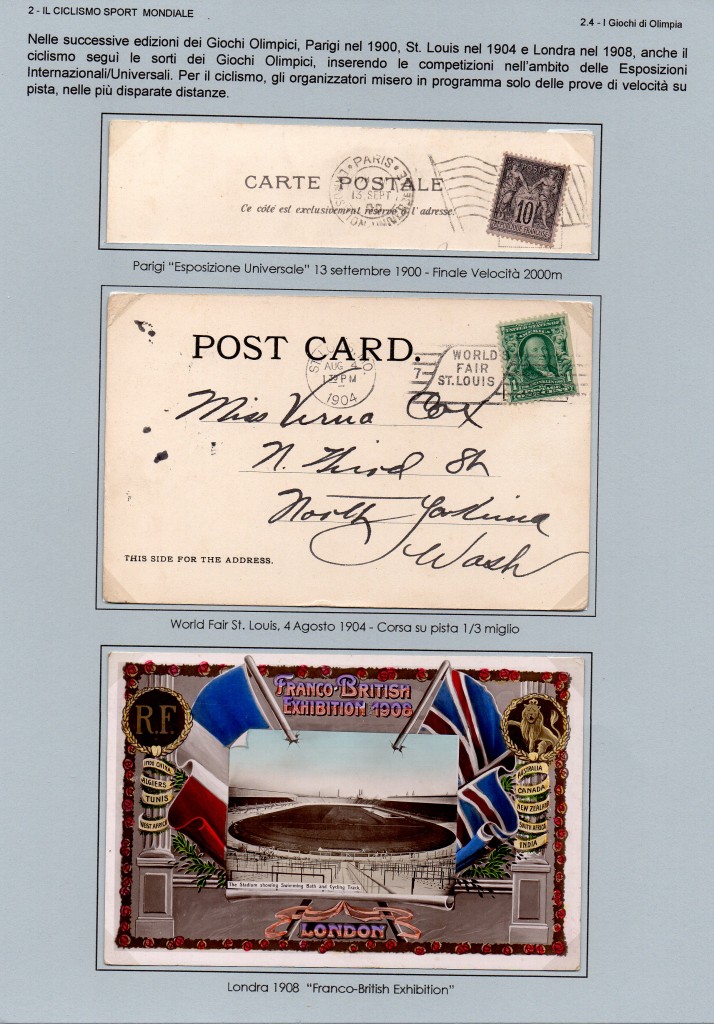 2 - IL CICLISMO SPORT MONDIALE
2.4 - I Giochi di Olimpia
Nelle successive edizioni dei Giochi Olimpici, Parigi nel 1900, St. Louis nel 1904 e Londra nel 1908, anche il
ciclismo seguì le sorti dei Giochi Olimpici, inserendo le competizioni nell'ambito delle Esposizioni
Internazionali/Universali. Per il ciclismo, gli organizzatori misero in programma solo delle prove di velocità su
pista, nelle più disparate distanze.
PARIS
13 SEPT
CARTE POSTALE
Ce côté est exclusivement réservé à l'adresse.
10
Parigi "Esposizione Universale" 13 settembre 1900 - Finale Velocità 2000m
POST CARD.
AUG 4
1904
WORLD'S
FAIR
ST. LOUIS
7
Miss Verna Cox
N. Third St
North Yakima
Wash
THIS SIDE FOR THE ADDRESS.
World Fair St. Louis, 4 Agosto 1904 - Corsa su pista 1/3 miglio
FRANCO-BRITISH
EXHIBITION 1908
R.F.
ALGIERS
TUNIS
WEST AFRICA
AUSTRALIA
CANADA
NEW ZEALAND
SOUTH AFRICA
INDIA
The Stadium showing Swimming Bath and Cycling Track.
LONDON
Londra 1908 "Franco-British Exhibition"